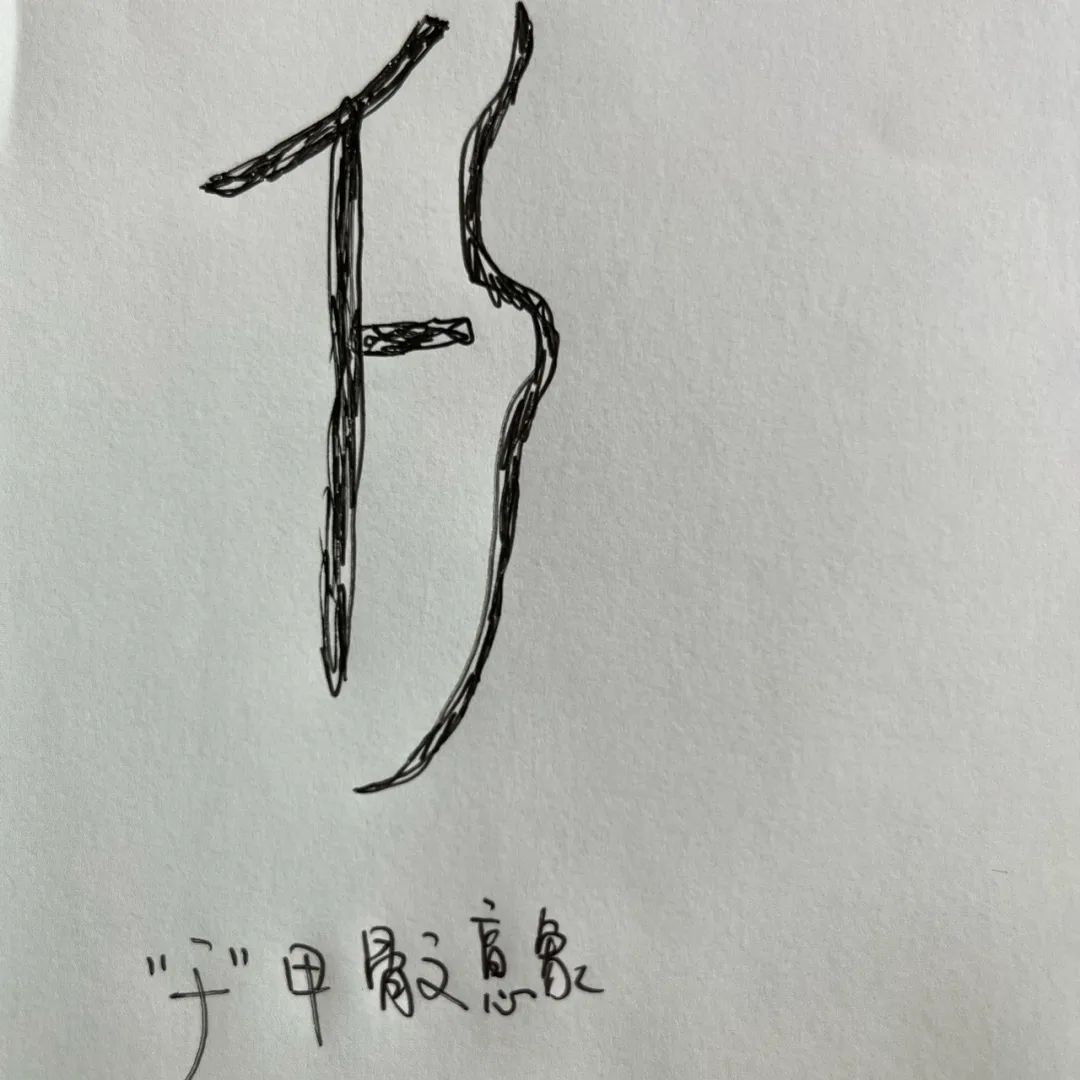 "于"甲骨文意象